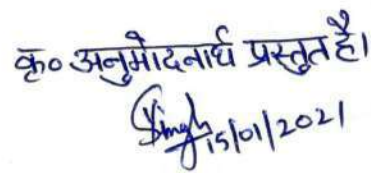 कृ० अनुमोदनार्थ प्रस्तुत है।
Singh 15/01/2021